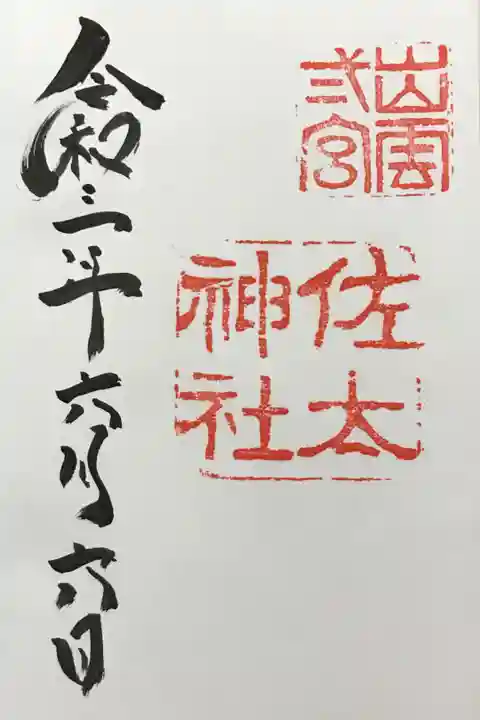 出雲
弍宮
佐太
神社
令和三年六月六日